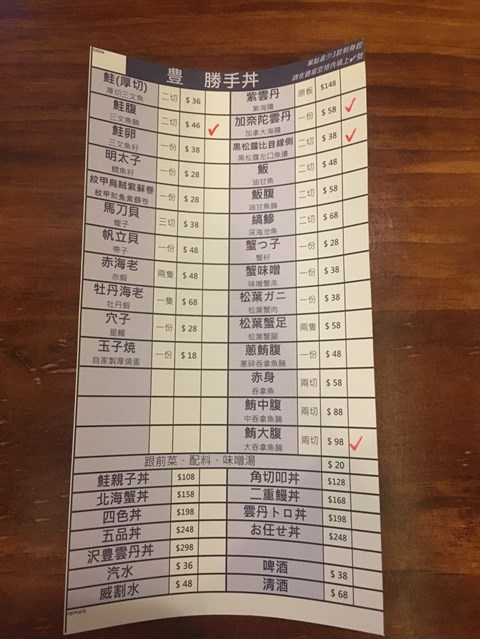 豊 勝手丼
單點最少3款刺身起
請在適當空格內填上✓號
鮭(厚切) 厚切三文魚 二切 $36
鮭腹 三文魚腩 二切 $46 ✓
鮭卵 三文魚籽 一份 $38
明太子 鱈魚籽 一份 $28
紋甲烏賊紫蘇卷 紋甲魷魚紫蘇卷 一份 $28
馬刀貝 蟶子 三切 $38
帆立貝 帶子 一份 $48
赤海老 赤蝦 兩隻 $48
牡丹海老 牡丹蝦 一隻 $68
穴子 星鰻 一份 $28
玉子焼 自家製厚燒蛋 一份 $18
紫雲丹 紫海膽 原板 $148
加奈陀雲丹 加拿大海膽 一份 $58 ✓
黒松露比目縁側 黑松露左口魚邊 二切 $38 ✓
魬 油甘魚 二切 $48
魬腹 油甘魚腩 二切 $58
縞鰺 深海池魚 二切 $68
蟹っ子 蟹籽 一份 $28
蟹味噌 味噌蟹羔 一份 $38
松葉ガニ 松葉蟹肉 一份 $38
松葉蟹足 松葉蟹腳 兩隻 $58
葱鮪腹 蔥碎吞拿魚腩 一份 $48
赤身 吞拿魚 兩切 $58
鮪中腹 中吞拿魚腩 兩切 $88
鮪大腹 大吞拿魚腩 兩切 $98 ✓
跟前菜、配料、味噌湯 $20
鮭親子丼 $108
北海蟹丼 $158
四色丼 $198
五品丼 $248
沢豊雲丹丼 $298
汽水 $36
威割水 $48
角切叩丼 $128
二重鰻丼 $168
雲丹トロ丼 $198
お任せ丼 $248
啤酒 $38
清酒 $68
remark